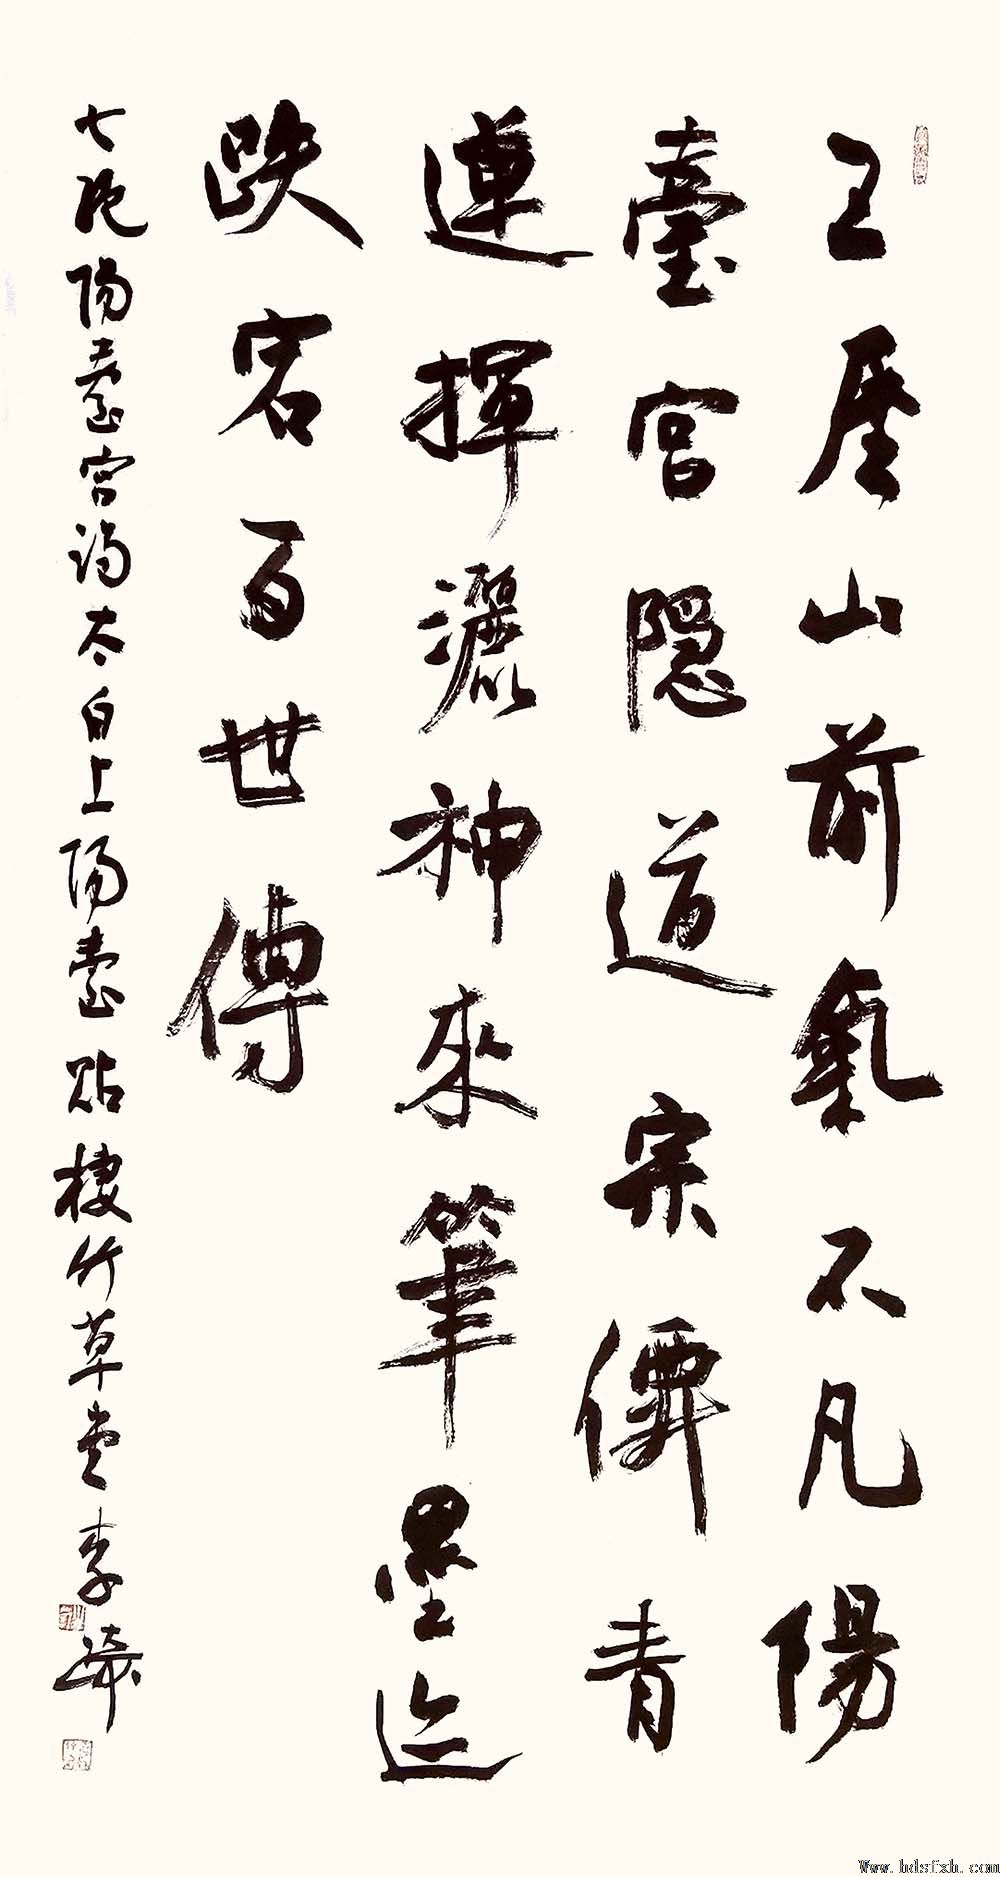 王屋山前氣不凡陽
臺宮隐道宗僊青
連揮灑神來筆墨迹
跌宕百世傳
七絕陽臺宮謁太白上陽臺貼棲竹草堂李
Www.hdsfxh.com